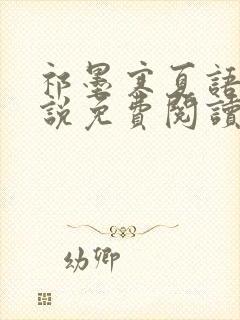 祁墨寒夏語
說免費閱讀
幼卿